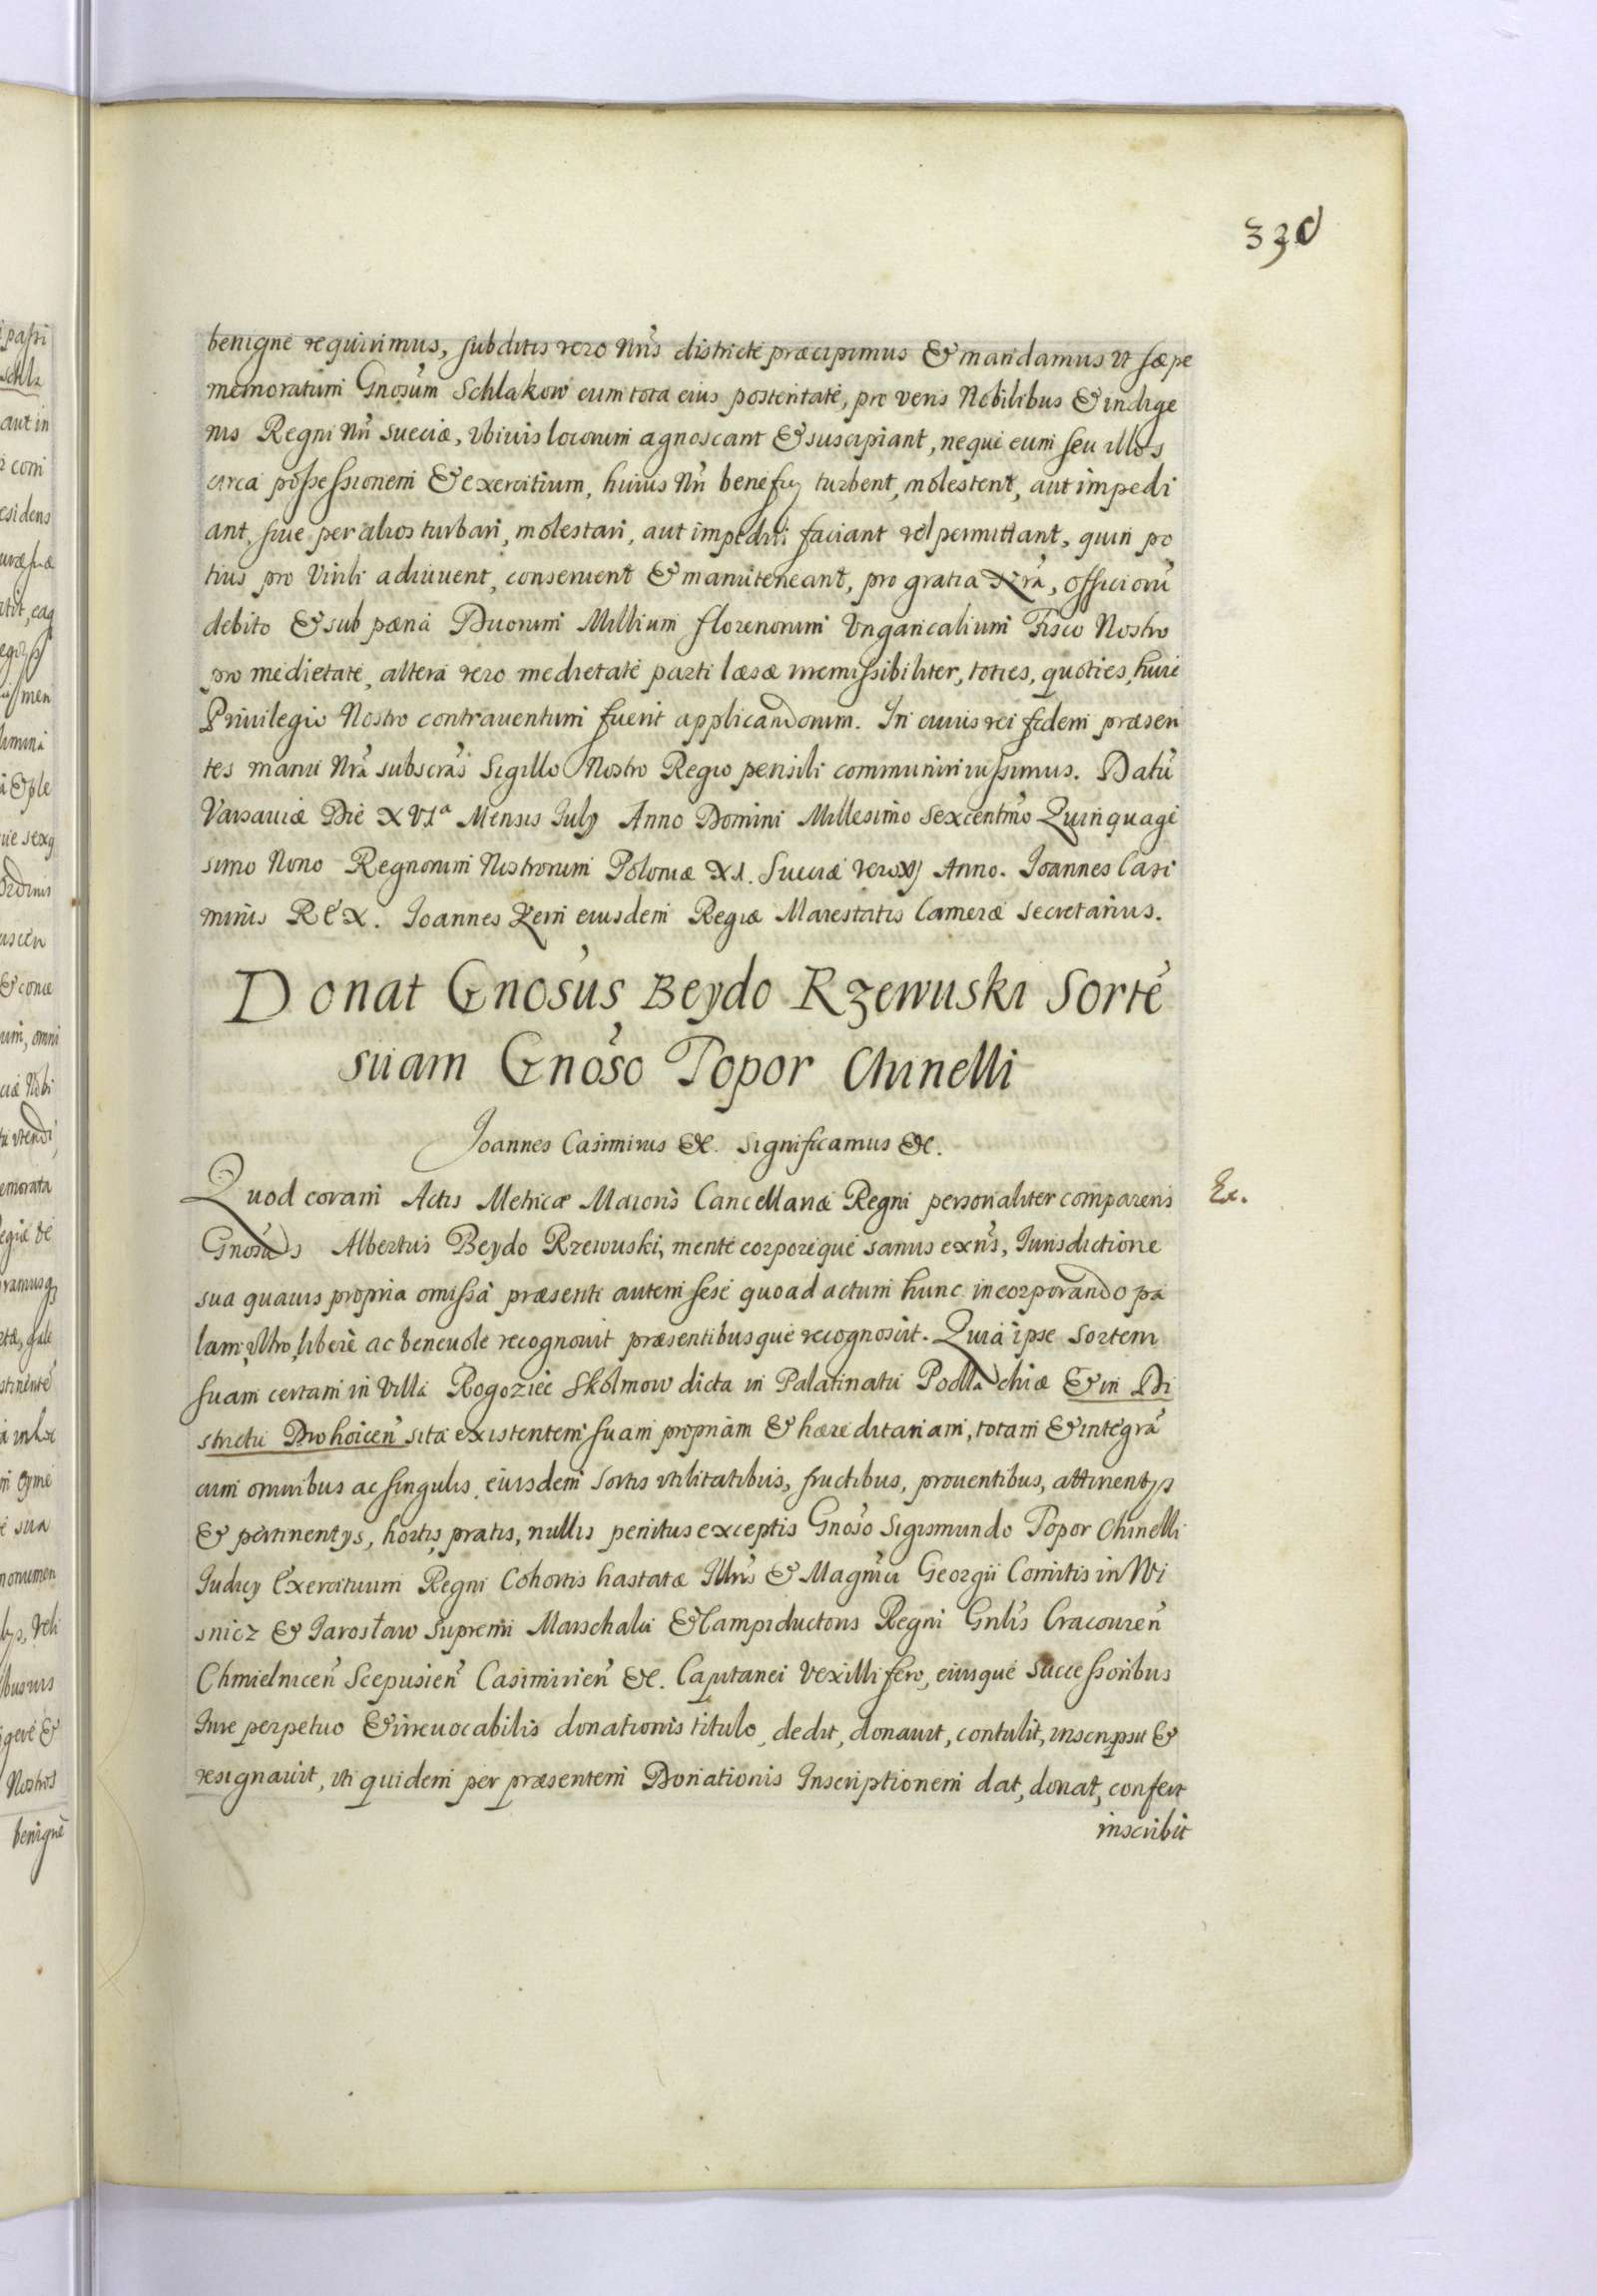 330
benigne requirimus, subditis vero Nr̃is districte præcipimus & mandamus vt sæpe
memoratum Gnosum Schlakow cum tota eius posteritate, pro veris Nobilibus & indige
nis Regni Nr̃i Sueciæ, vbiuis locorum agnoscant & suscipiant, neque eum seu illos
circa possessionem & exercitium, huius Nr̃i beneficij turbent, molestent, aut impedi
ant, siue per alios turbari, molestari, aut impediri faciant vel permittant, quin po
tius pro Virili adiuuent, conseruent & manuteneant, pro gratia Nrã, officiorũ
debito & sub pæna Duorum Millium florenorum Vngaricalium Fisco Nostro
pro medietate, altera vero medietate parti læsæ irremissibiliter, toties, quoties, huic
Priuilegio Nostro contrauentum fuerit applicandorum. In cuius rei fidem præsen
tes manu Nrã subscrãs Sigillo Nostro Regio pensili communiri iussimus. Datũ
Varsauiæ Die XVIa Mensis July Anno Domini Millesimo Sexcentmo Quinquage
simo Nono Regnorum Nostrorum Poloniæ XI. Sueciæ vero XII Anno. Joannes Casi
mirus REX. Joannes Rem eiusdem Regiæ Maiestatis Cameræ Secretarius.
Donat Gnosus Beydo Rzewuski Sorte
suam Gnoso Topor Chinelli
Joannes Casimirus &c. Significamus &c.
Quod coram Actis Metricæ Maioris Cancellariæ Regni personaliter comparens
Ex.
Gnosus Albertus Beydo Rzewuski, mente corporeque sanus exñs, Jurisdictione
sua quauis propria omissa præsenti autem sese quoad actum hunc incorporando pa
lam, vltro, libere ac beneuole recognouit præsentibusque recognoscit. Quia ipse Sortem
suam certam in Villa Rogoziec Skolmow dicta in Palatinatu Podlachiæ & in Di
strictu Drohicen̄ sita existentem suam propriam & hæreditariam, totam & integrã
cum omnibus ac singulis eiusdem Sortis vtilitatibus, fructibus, prouentibus, attinentijs
& pertinentys, hortis, pratis, nullis penitus exceptis Gnoso Sigismundo Topor Chinelli
Judicy Exercituum Regni Cohortis hastatæ Illris & Magnici Georgii Comitis in Wi
snicz & Jarosław Supremi Marschalci & Campiductoris Regni Gnlis Cracouien̄
Chmielnicen̄ Scepusien̄ Casimirien̄ &c. Capitanei Vexillifero, eiusque Successoribus
Iure perpetuo & irreuocabilis donationis titulo, dedit, donauit, contulit, inscripsit &
resignauit, vti quidem per præsentem Donationis Inscriptionem dat, donat, confert
inscribit